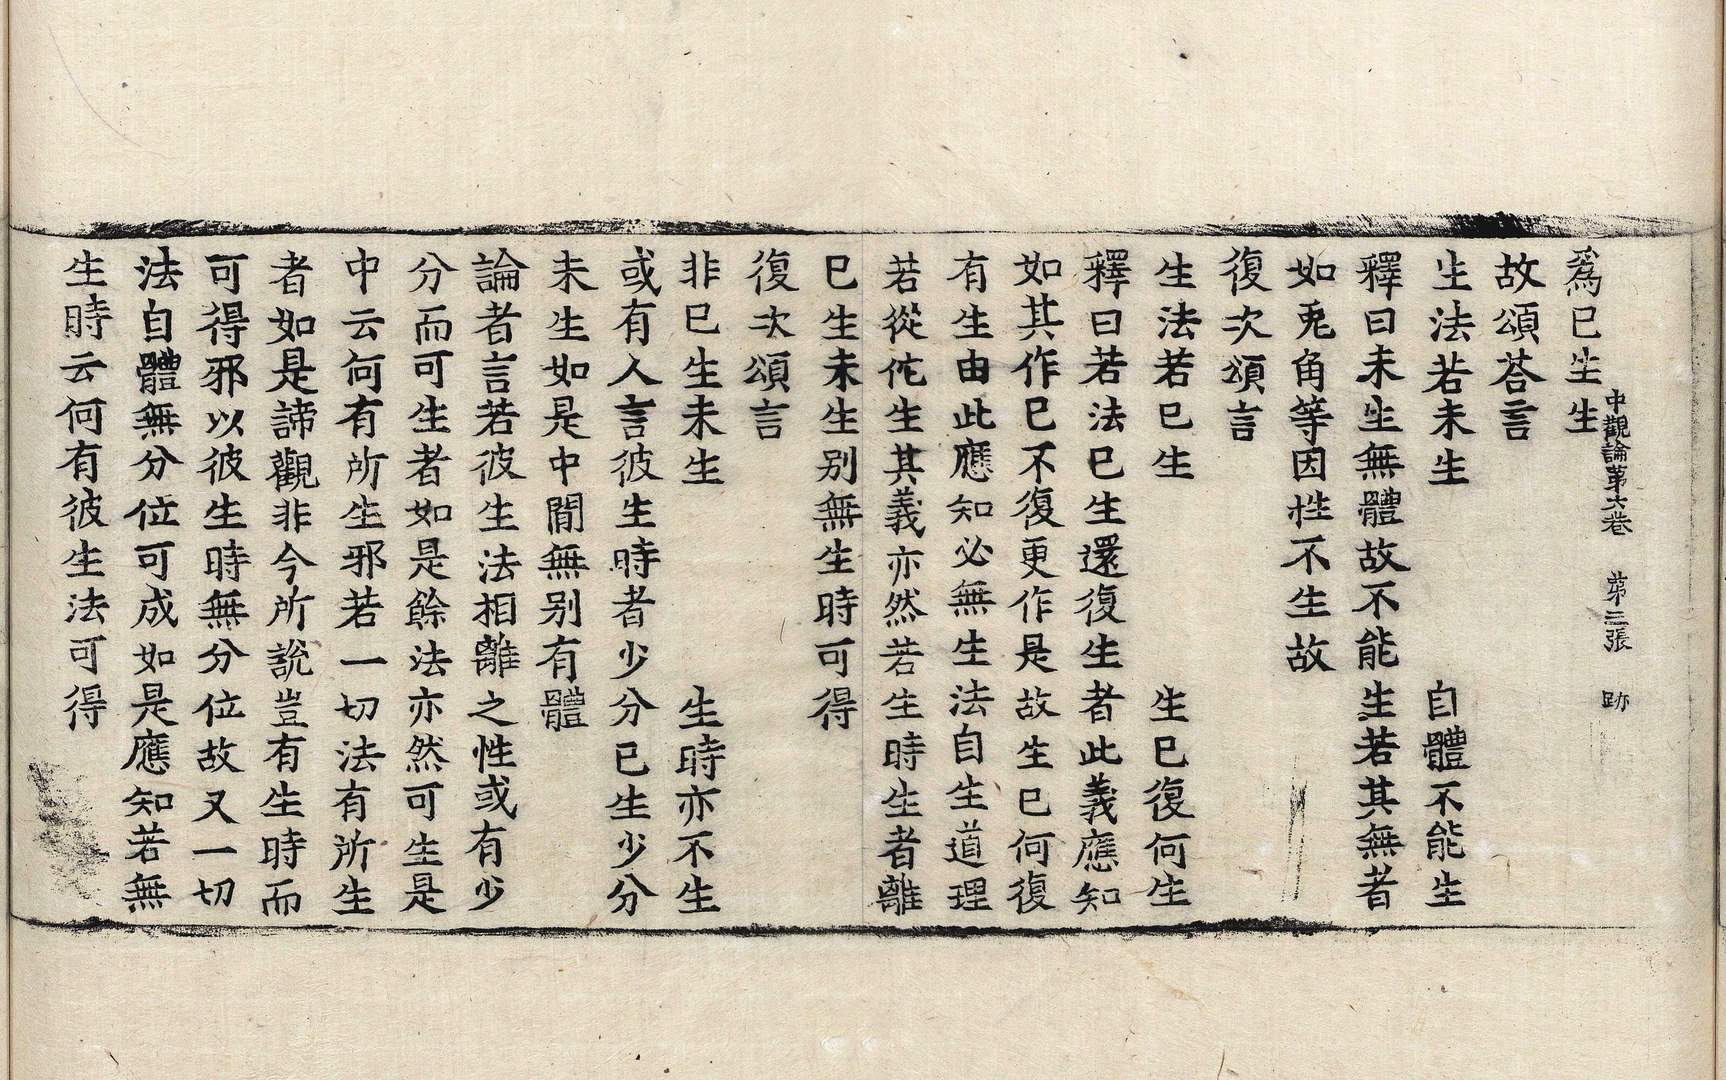 中觀論第六卷　第二張　跡
爲已生生
故頌荅言
生法若未生　自體不能生
釋曰未生無體故不能生若其無者
如兎角等因性不生故
復次頌言
生法若已生　生已復何生
釋曰若法已生還復生者此義應知
如其作已不復更作是故生已何復
有生由此應知必無生法自生道理
若從佗生其義亦然若生時生者離
已生未生別無生時可得
復次頌言
非已生未生　生時亦不生
或有人言彼生時者少分已生少分
未生如是中間無別有體
論者言若彼生法相離之性或有少
分而可生者如是餘法亦然可生是
中云何有所生邪若一切法有所生
者如是諦觀非今所說豈有生時而
可得邪以彼生時無分位故又一切
法自體無分位可成如是應知若無
生時云何有彼生法可得